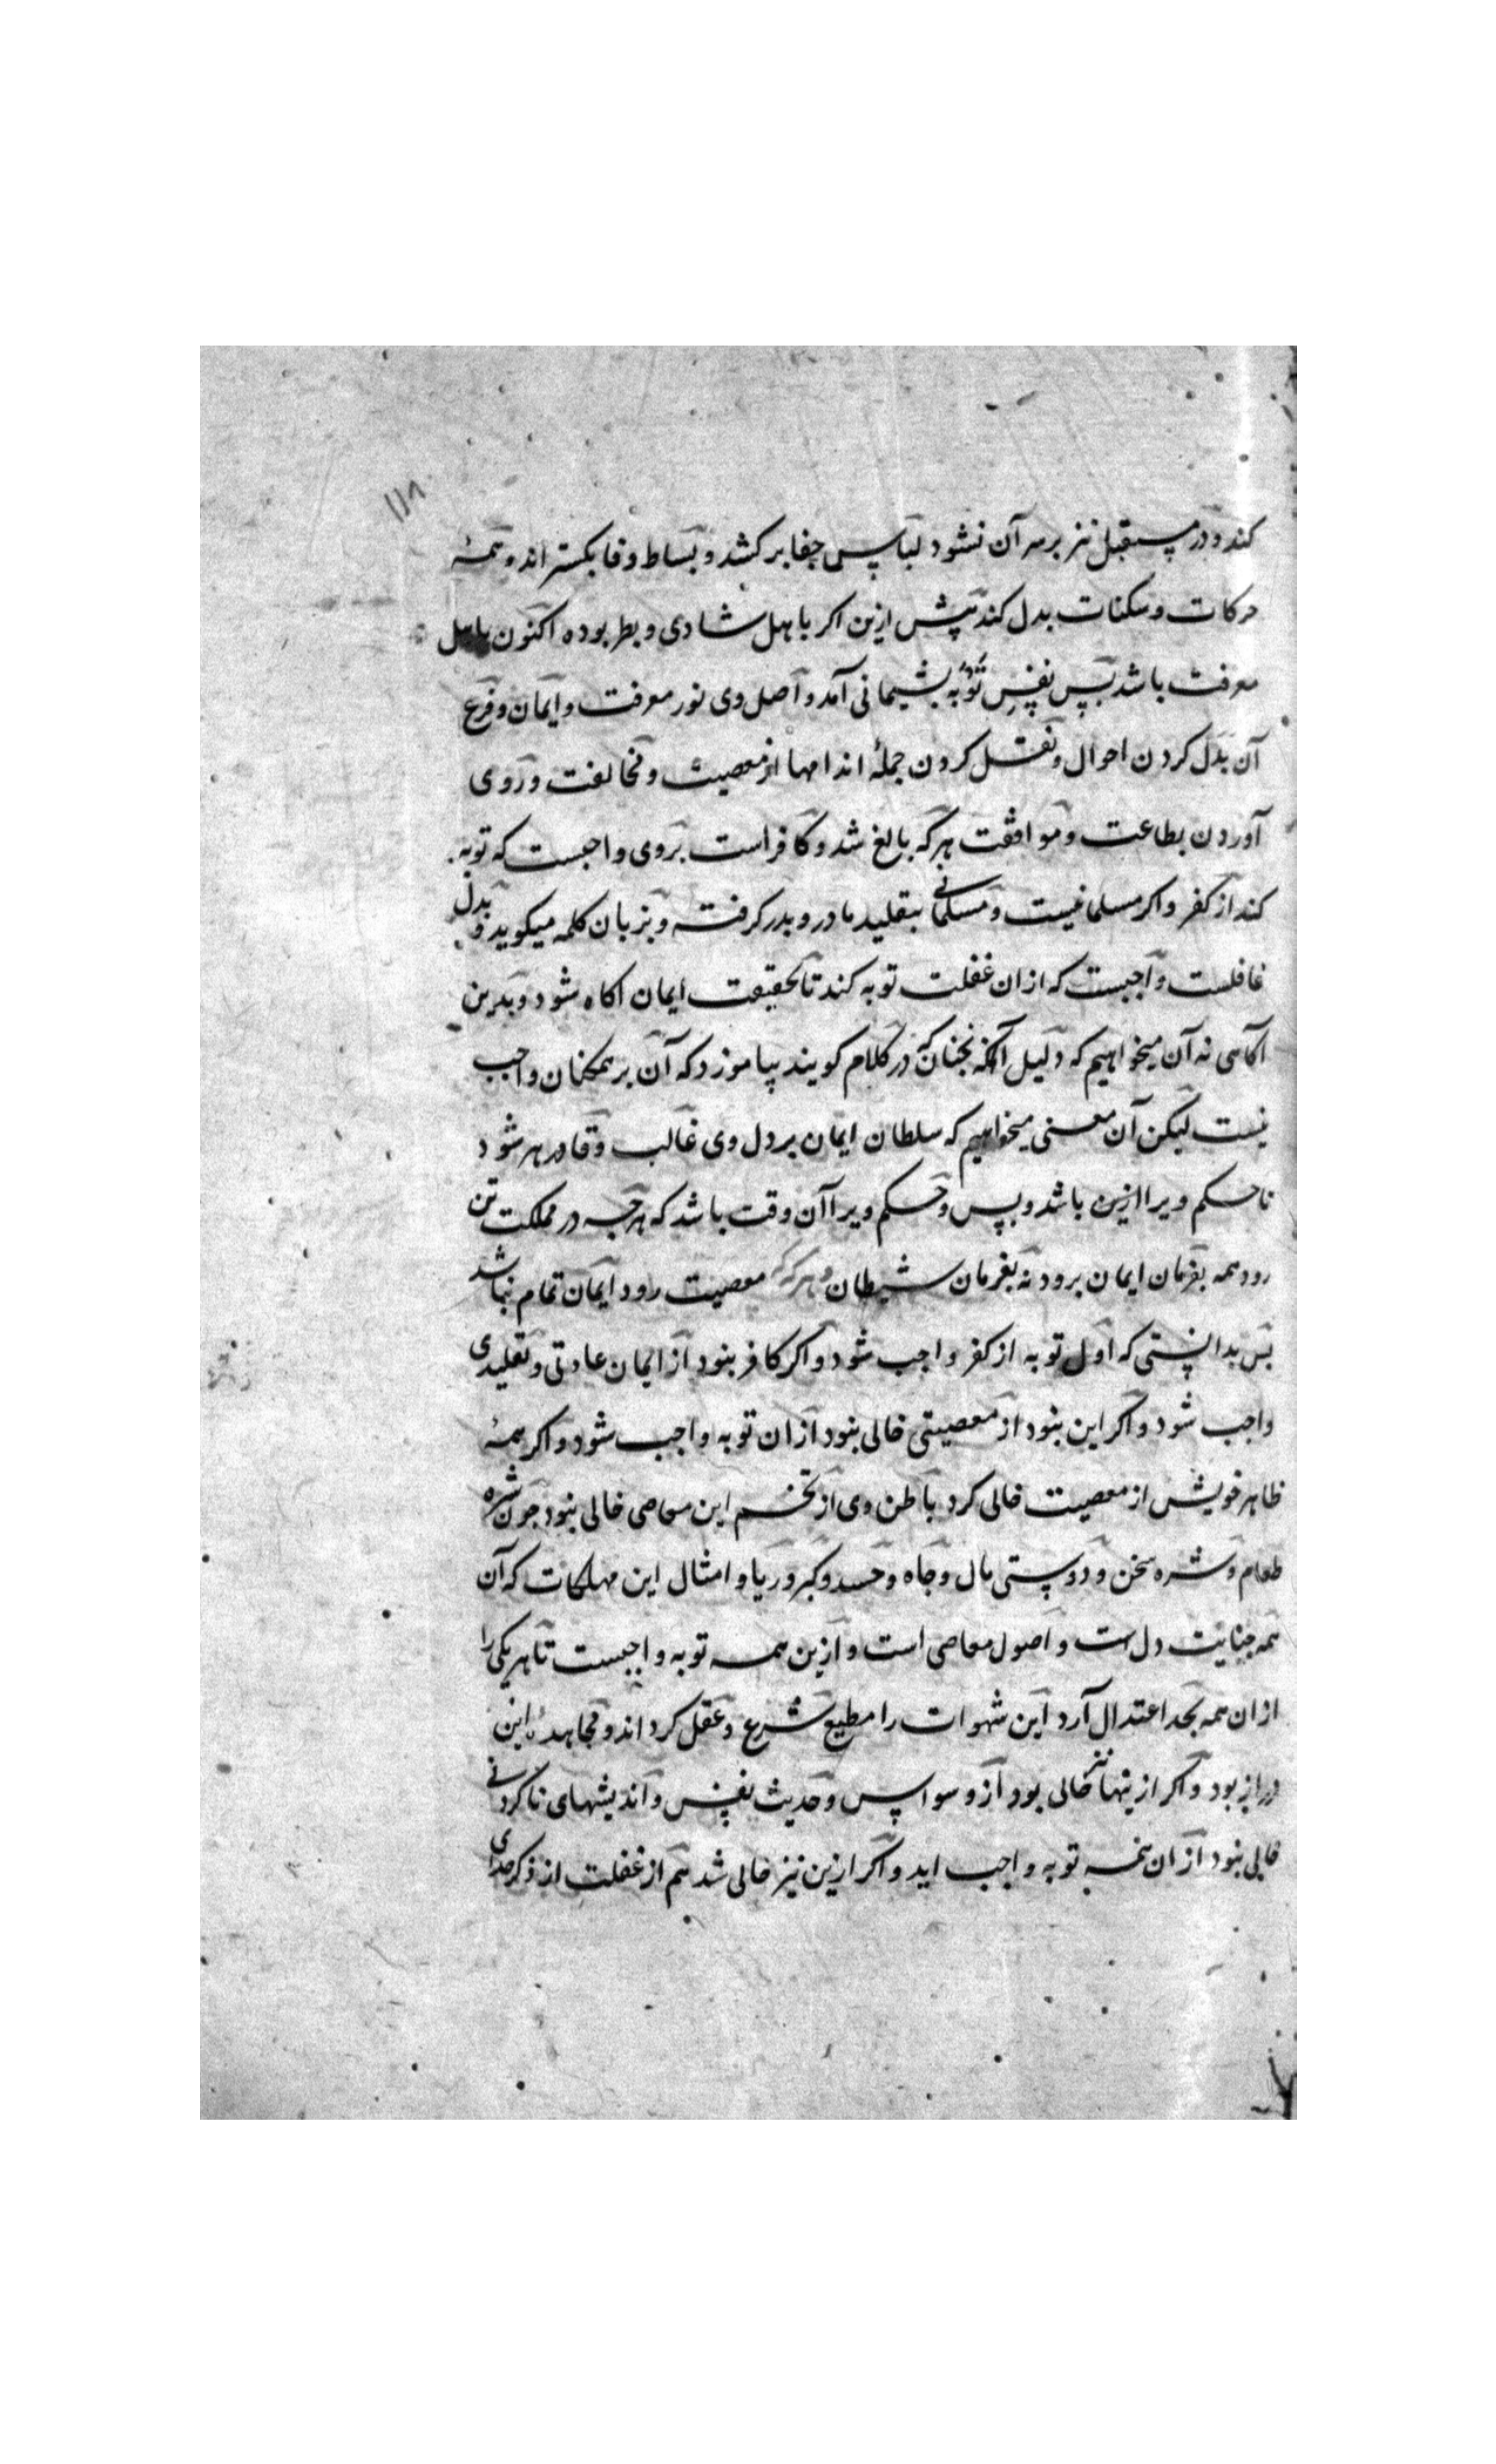 ۱۱۸
کند و در مستقبل نیز بر سر آن نشود لباس جفا برکشد و بساط وفا بکستراند و همهٔ
حرکات و سکنات بدل کند پیش ازین اکر باهل شادی و بطر بوده اکنون باهل
معرفت باشد پس نفس توبه پشیمانی آمد و اصل وی نور معرفت و ایمان و فرع
آن بدل کردن احوال و نقل کردن جملهٔ اندامها از معصیت و مخالفت و روی
آوردن بطاعت و موافقت هرکه بالغ شد و کافر است بروی واجبست که توبه
کند از کفر و اکر مسلمانیست و مسلمانی بتقلید مادر و پدر کرفته و بزبان کلمه میکوید و بدل
غافلست واجبست که ازان غفلت توبه کند تا بحقیقت ایمان اکاه شود و بدین
اکاهی نه آن میخواهیم که دلیل آنکه بجنانکه در کلام کویند بیاموزد که آن بر همکنان واجب
نیست لیکن آن معنی میخواهیم که سلطان ایمان بر دل وی غالب و قاهر شود
تا حکم ویرا ازین باشد و بس و حکم ویرا آن وقت باشد که هرچه در مملکت تن
رود همه بفرمان ایمان برود نه بفرمان شیطان و هرکه که معصیت رود ایمان تمام نباشد
پس بدانستی که اول توبه از کفر واجب شود و اکر کافر نبود از ایمان عادتی و تقلیدی
واجب شود و اکر این نبود از معصیتی خالی نبود ازان توبه واجب شود و اکر همهٔ
ظاهر خویش از معصیت خالی کرد باطن وی از تخم این معاصی خالی نبود جون شره
طعام و شره سخن و دوستی مال و جاه و حسد و کبر و ریا و امثال این مهلکات که آن
همه جنایت دل است و اصول معاصی است و ازین همه توبه واجبست تا هر یکی را
ازان همه بحد اعتدال آرد این شهوات را مطیع شرع و عقل کرداند و مجاهدهٔ این
دراز بود و اکر ازینها نیز خالی بود از وسواس و حدیث نفس و اندیشهای ناکردنی
خالی نبود ازان همه توبه واجب اید و اکر ازین نیز خالی شد هم از غفلت از ذکر خدای